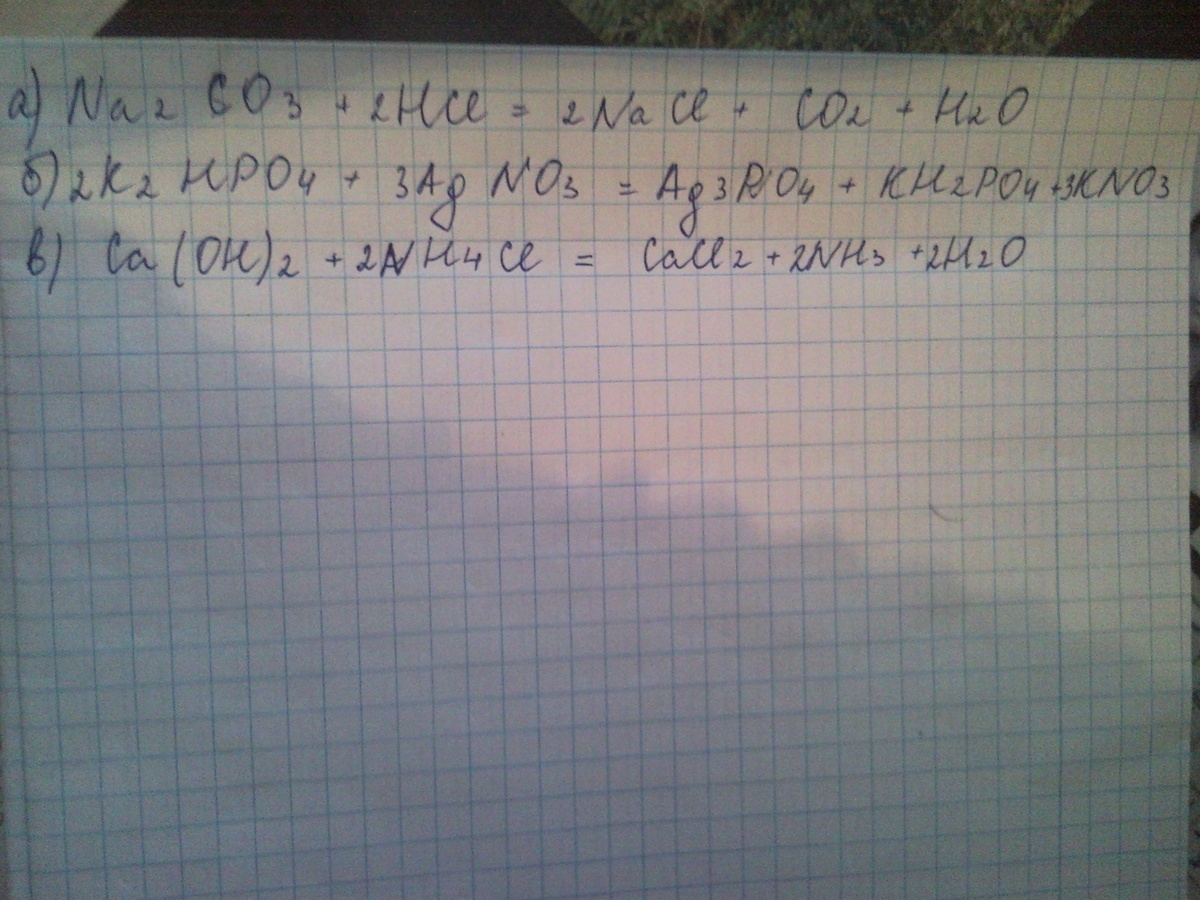 а) Na2 CO3 + 2HCl = 2NaCl + CO2 + H2O
б) 2K2 HPO4 + 3Ag NO3 = Ag3PO4 + KH2PO4 + 3KNO3
в) Ca (OH)2 + 2NH4 Cl = CaCl2 + 2NH3 + 2H2O